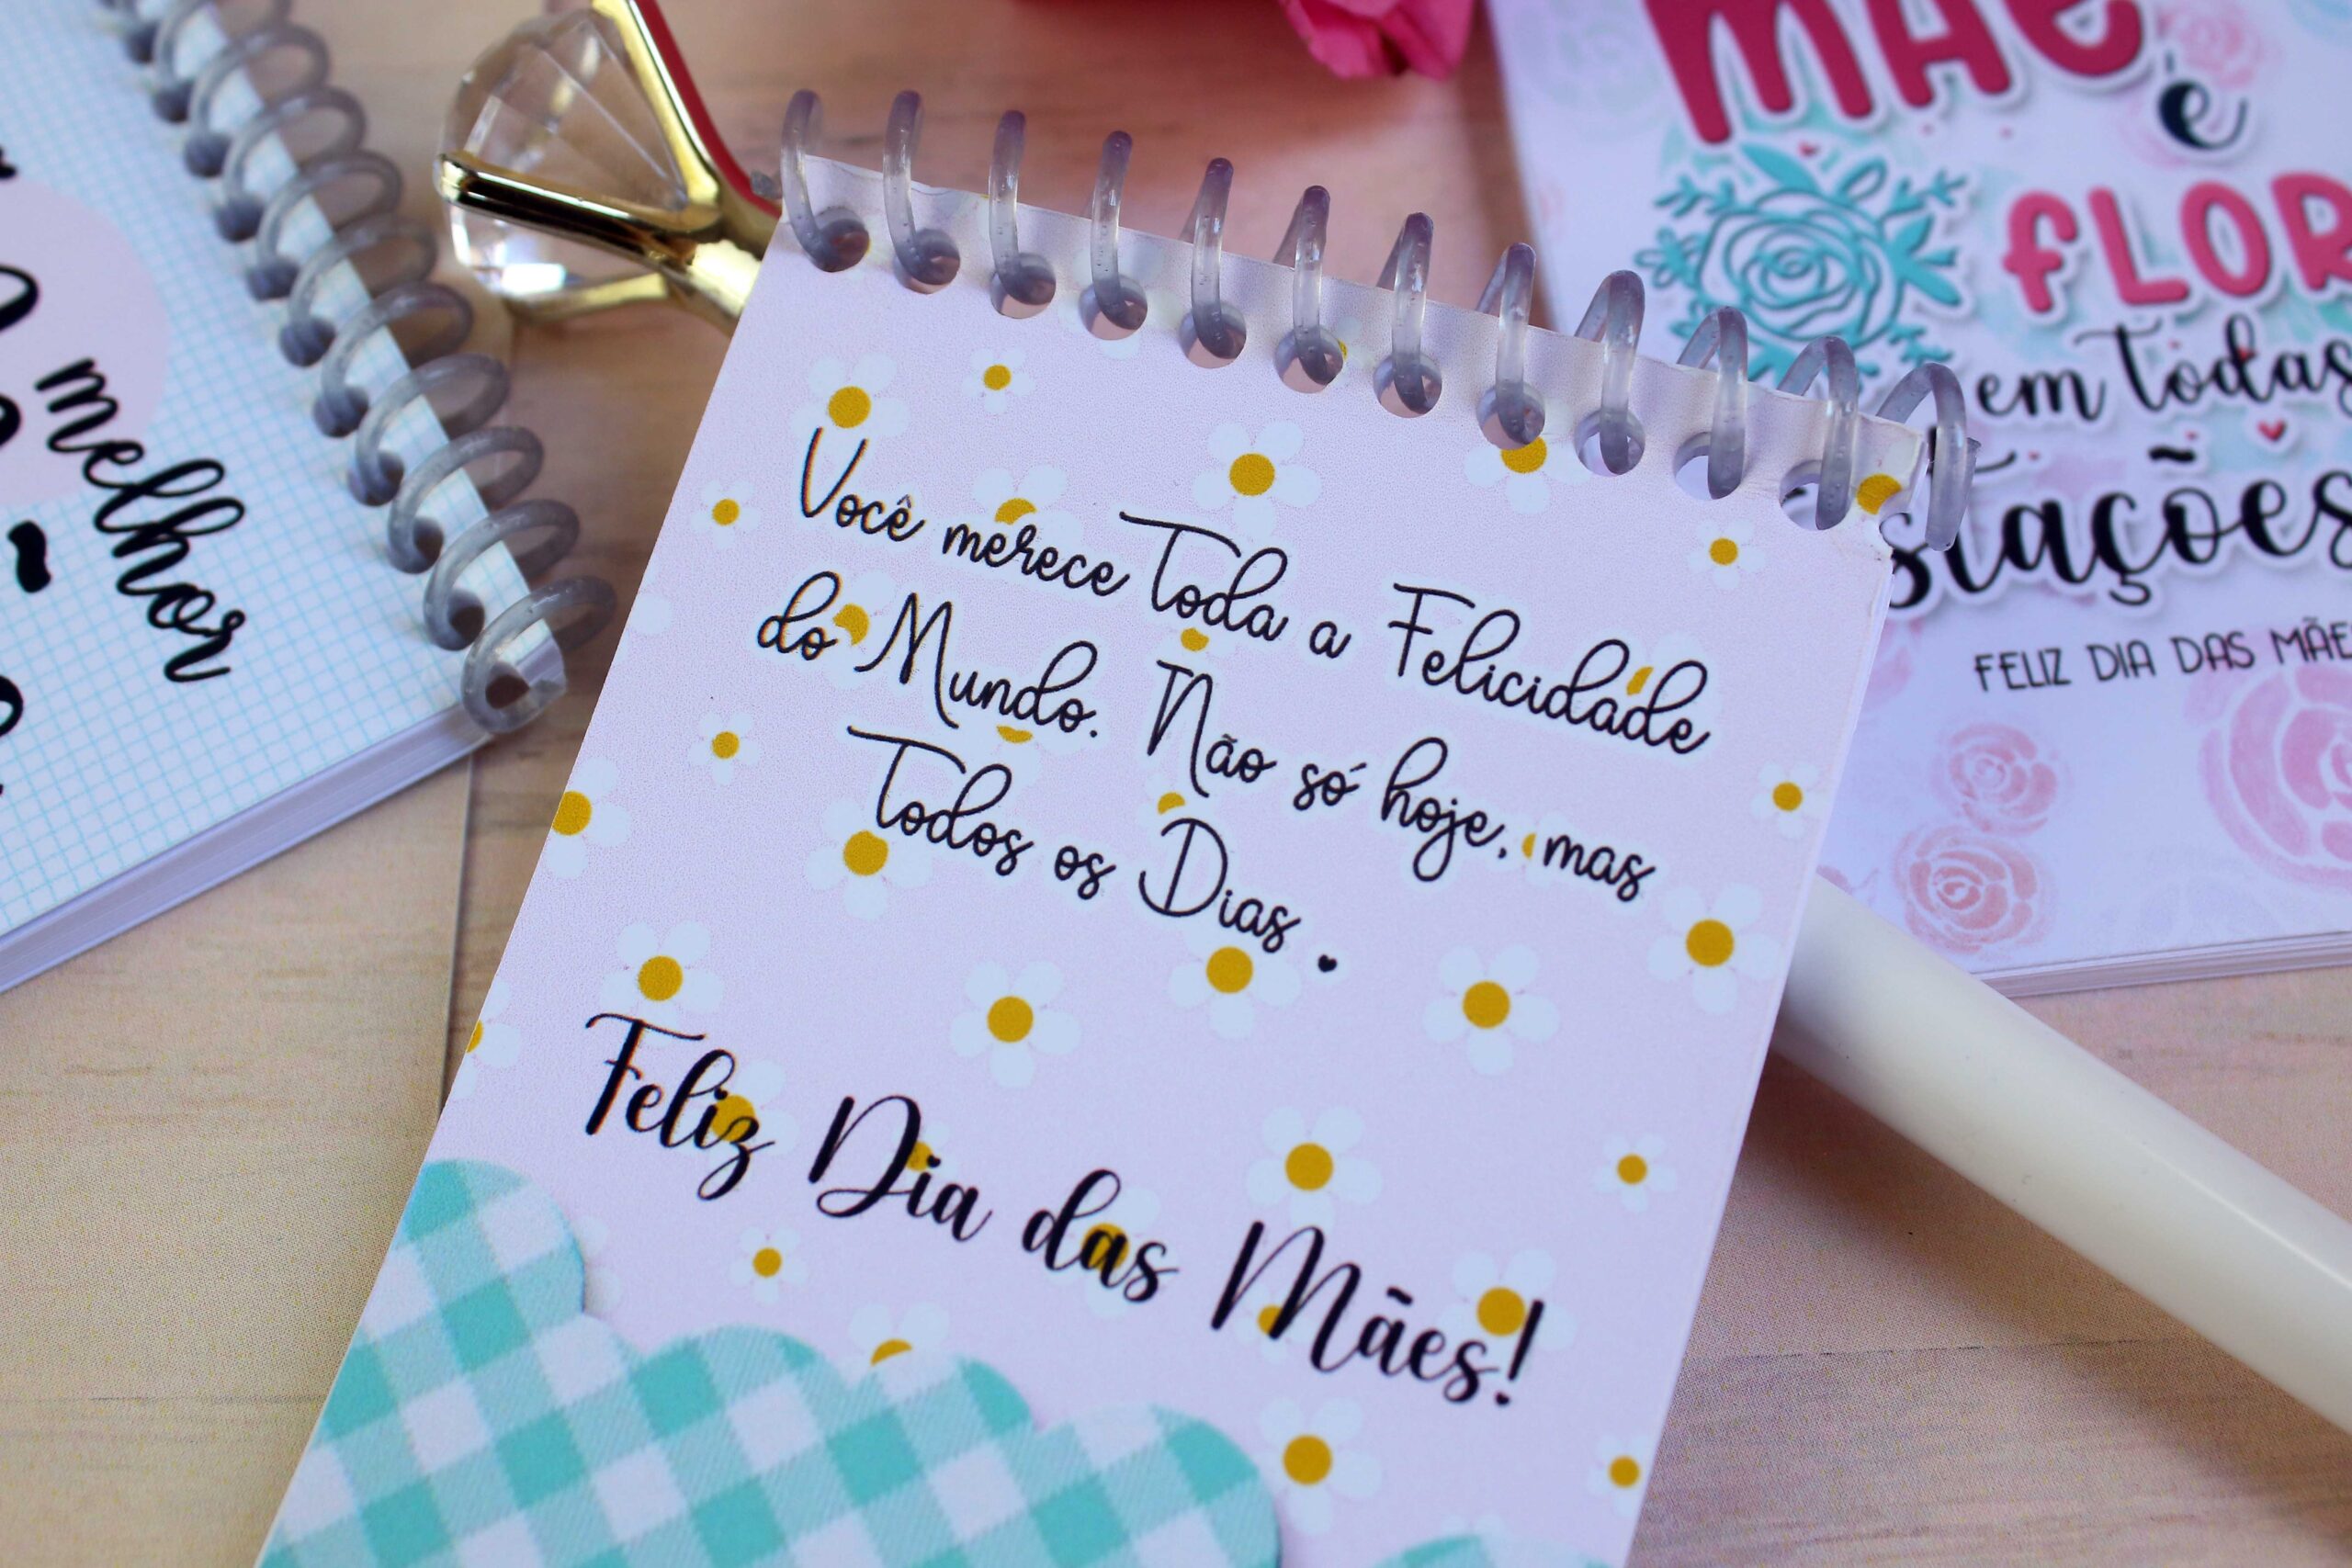 Você merece Toda a Felicidade
do Mundo. Não só hoje, mas
Todos os Dias.
Feliz Dia das Mães!
melhor
MÃE
é
fLOR
em todas
estações
FELIZ DIA DAS MÃE